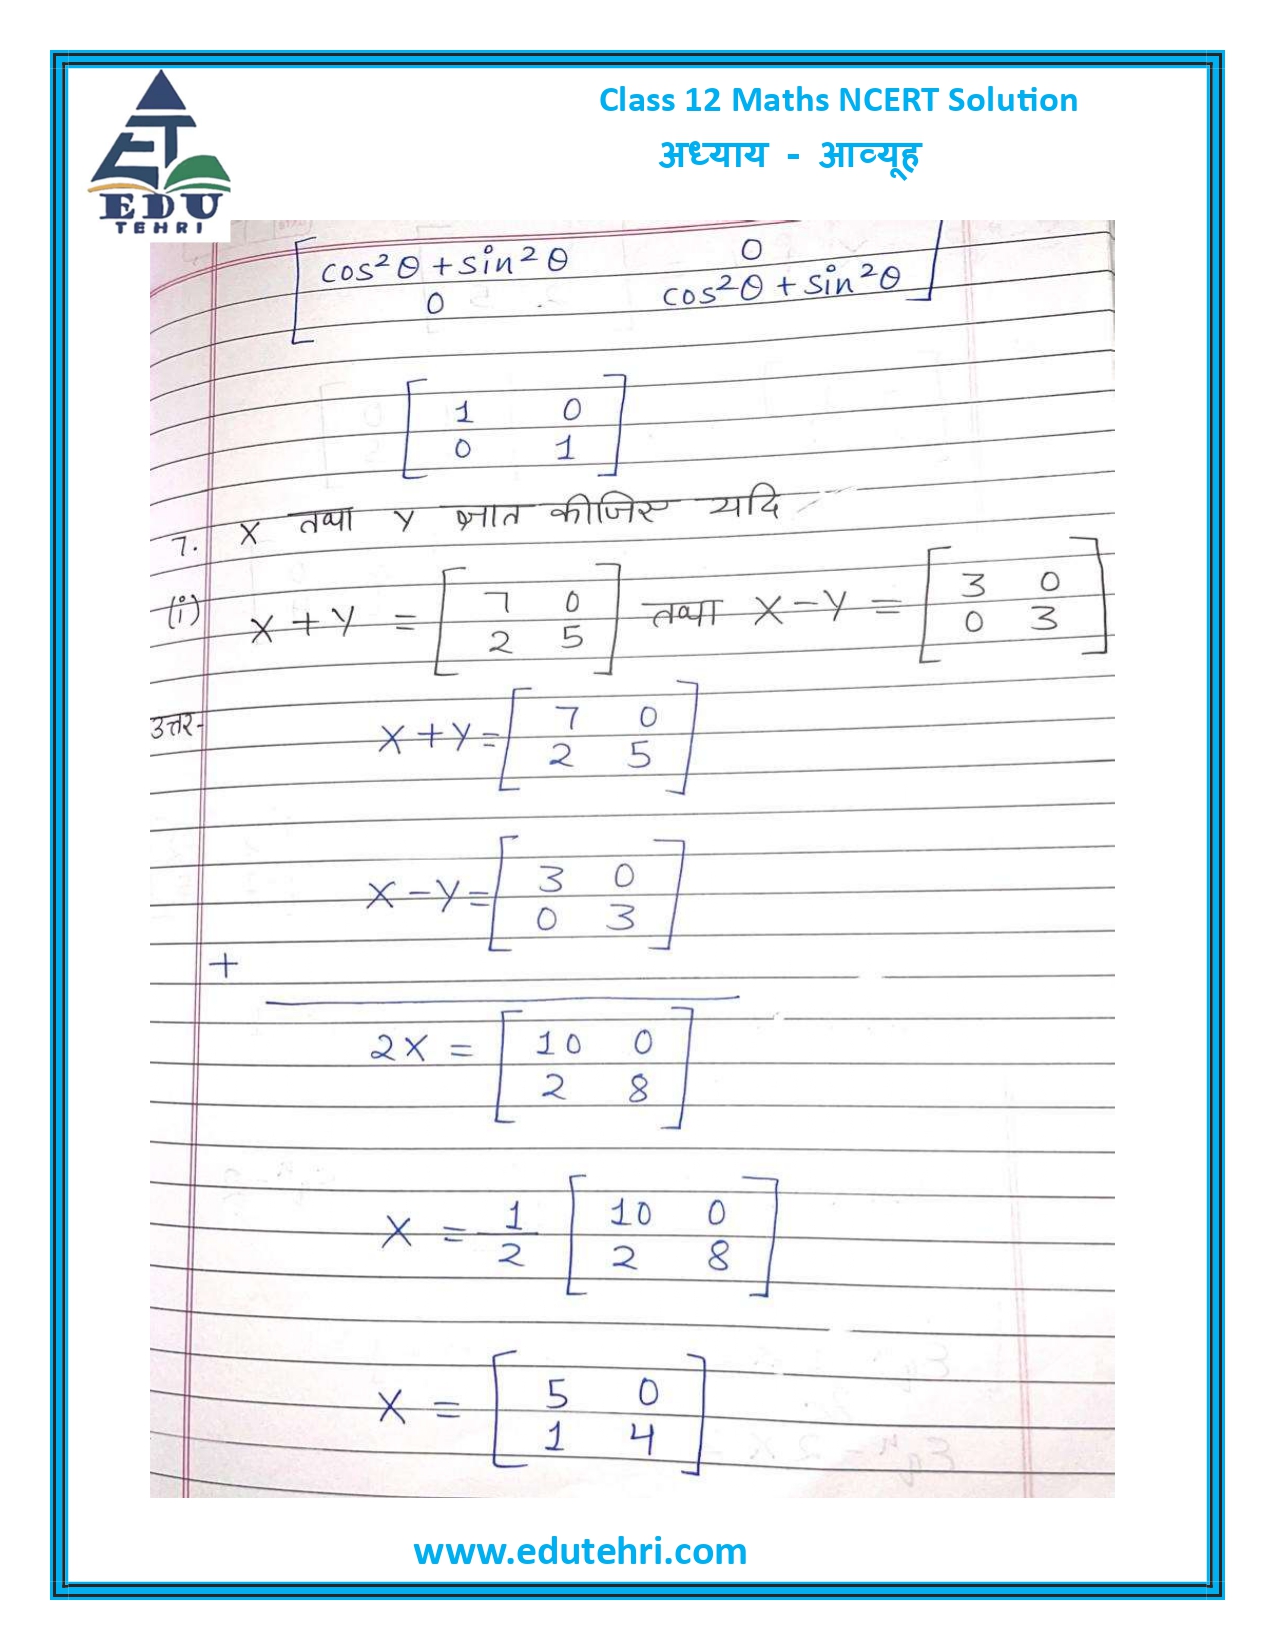 Class 12 Maths NCERT Solution
अध्याय - आव्यूह
EDU
TEHRI
[ cos²θ + sin²θ 0
0 cos²θ + sin²θ ]
[ 1 0
0 1 ]
7. X तथा Y ज्ञात कीजिए यदि
(i) X + Y = [ 7 0 तथा X - Y = [ 3 0
2 5 ] 0 3 ]
उत्तर- X + Y = [ 7 0
2 5 ]
X - Y = [ 3 0
0 3 ]
+
2X = [ 10 0
2 8 ]
X = 1/2 [ 10 0
2 8 ]
X = [ 5 0
1 4 ]
www.edutehri.com